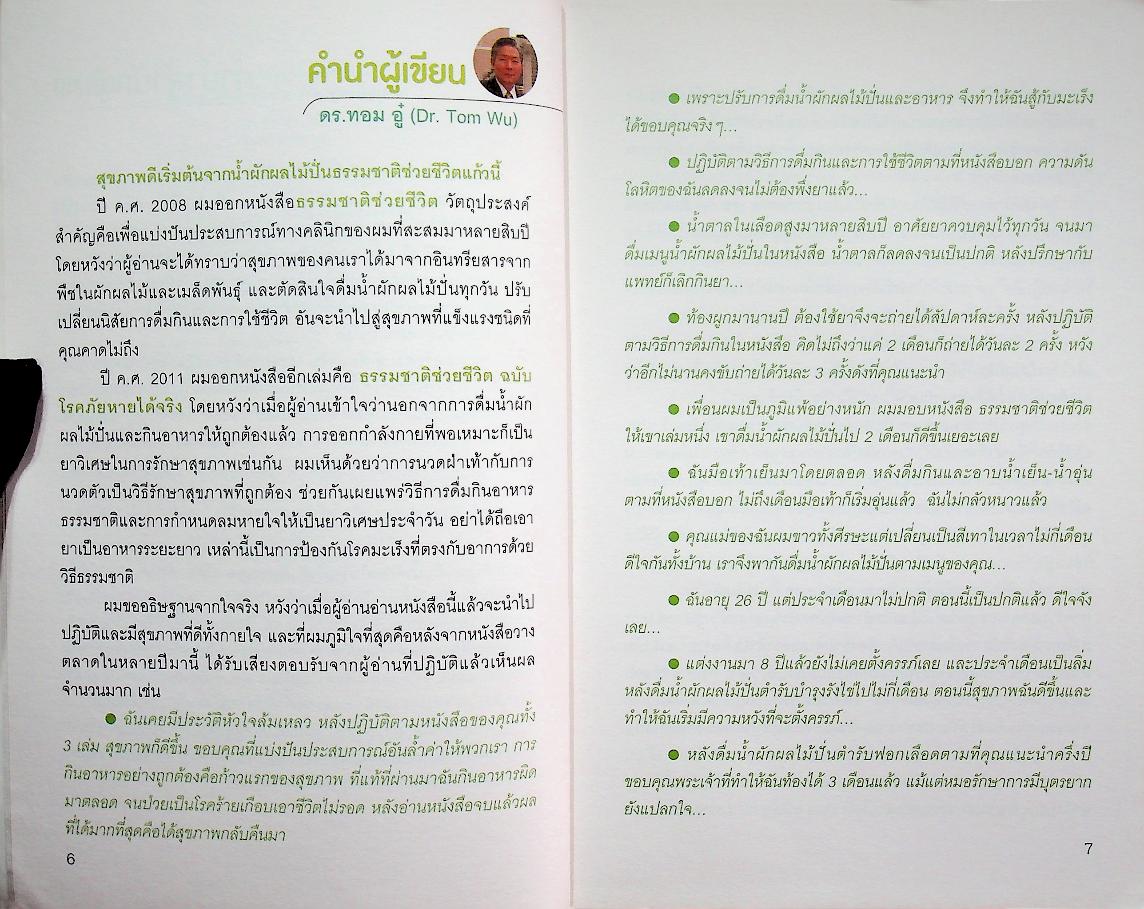 คำนำผู้เขียน
ดร.ทอม อู๋ (Dr. Tom Wu)
สุขภาพดีเริ่มต้นจากน้ำผักผลไม้ปั่นธรรมชาติช่วยชีวิตแก้วนี้
ปี ค.ศ. 2008 ผมออกหนังสือธรรมชาติช่วยชีวิต วัตถุประสงค์
สำคัญคือเพื่อแบ่งปันประสบการณ์ทางคลินิกของผมที่สะสมมาหลายสิบปี
โดยหวังว่าผู้อ่านจะได้ทราบว่าสุขภาพของคนเราได้มาจากอินทรียสารจาก
พืชในผักผลไม้และเมล็ดพันธุ์ และตัดสินใจดื่มน้ำผักผลไม้ปั่นทุกวัน ปรับ
เปลี่ยนนิสัยการดื่มกินและการใช้ชีวิต อันจะนำไปสู่สุขภาพที่แข็งแรงชนิดที่
คุณคาดไม่ถึง
ปี ค.ศ. 2011 ผมออกหนังสืออีกเล่มคือ ธรรมชาติช่วยชีวิต ฉบับ
โรคภัยหายได้จริง โดยหวังว่าเมื่อผู้อ่านเข้าใจว่านอกจากการดื่มน้ำผัก
ผลไม้ปั่นและกินอาหารให้ถูกต้องแล้ว การออกกำลังกายที่พอเหมาะก็เป็น
ยาวิเศษในการรักษาสุขภาพเช่นกัน ผมเห็นด้วยว่าการนวดฝ่าเท้ากับการ
นวดตัวเป็นวิธีรักษาสุขภาพที่ถูกต้อง ช่วยกันเผยแพร่วิธีการดื่มกินอาหาร
ธรรมชาติและการกำหนดลมหายใจให้เป็นยาวิเศษประจำวัน อย่าได้ถือเอา
ยาเป็นอาหารระยะยาว เหล่านี้เป็นการป้องกันโรคมะเร็งที่ตรงกับอาการด้วย
วิธีธรรมชาติ
ผมขออธิษฐานจากใจจริง หวังว่าเมื่อผู้อ่านอ่านหนังสือนี้แล้วจะนำไป
ปฏิบัติและมีสุขภาพที่ดีทั้งกายใจ และที่ผมภูมิใจที่สุดคือหลังจากหนังสือวาง
ตลาดในหลายปีมานี้ ได้รับเสียงตอบรับจากผู้อ่านที่ปฏิบัติแล้วเห็นผล
จำนวนมาก เช่น
● ฉันเคยมีประวัติหัวใจล้มเหลว หลังปฏิบัติตามหนังสือของคุณทั้ง
3 เล่ม สุขภาพก็ดีขึ้น ขอบคุณที่แบ่งปันประสบการณ์อันล้ำค่าให้พวกเรา การ
กินอาหารอย่างถูกต้องคือก้าวแรกของสุขภาพ ที่แท้ที่ผ่านมาฉันกินอาหารผิด
มาตลอด จนป่วยเป็นโรคร้ายเกือบเอาชีวิตไม่รอด หลังอ่านหนังสือจบแล้วผล
ที่ได้มากที่สุดคือได้สุขภาพกลับคืนมา
6
● เพราะปรับการดื่มน้ำผักผลไม้ปั่นและอาหาร จึงทำให้ฉันสู้กับมะเร็ง
ได้ขอบคุณจริงๆ...
● ปฏิบัติตามวิธีการดื่มกินและการใช้ชีวิตตามที่หนังสือบอก ความดัน
โลหิตของฉันลดลงจนไม่ต้องพึ่งยาแล้ว...
● น้ำตาลในเลือดสูงมาหลายสิบปี อาศัยยาควบคุมไว้ทุกวัน จนมา
ดื่มเมนูน้ำผักผลไม้ปั่นในหนังสือ น้ำตาลก็ลดลงจนเป็นปกติ หลังปรึกษากับ
แพทย์ก็เลิกกินยา...
● ท้องผูกมานานปี ต้องใช้ยาจึงจะถ่ายได้สัปดาห์ละครั้ง หลังปฏิบัติ
ตามวิธีการดื่มกินในหนังสือ คิดไม่ถึงว่าแค่ 2 เดือนก็ถ่ายได้วันละ 2 ครั้ง หวัง
ว่าอีกไม่นานคงขับถ่ายได้วันละ 3 ครั้งดังที่คุณแนะนำ
● เพื่อนผมเป็นภูมิแพ้อย่างหนัก ผมมอบหนังสือ ธรรมชาติช่วยชีวิต
ให้เขาเล่มหนึ่ง เขาดื่มน้ำผักผลไม้ปั่นไป 2 เดือนก็ดีขึ้นเยอะเลย
● ฉันมือเท้าเย็นมาโดยตลอด หลังดื่มกินและอาบน้ำเย็น-น้ำอุ่น
ตามที่หนังสือบอก ไม่ถึงเดือนมือเท้าก็เริ่มอุ่นแล้ว ฉันไม่กลัวหนาวแล้ว
● คุณแม่ของฉันผมขาวทั้งศีรษะแต่เปลี่ยนเป็นสีเทาในเวลาไม่กี่เดือน
ดีใจกันทั้งบ้าน เราจึงพากันดื่มน้ำผักผลไม้ปั่นตามเมนูของคุณ...
● ฉันอายุ 26 ปี แต่ประจำเดือนมาไม่ปกติ ตอนนี้เป็นปกติแล้ว ดีใจจัง
เลย...
● แต่งงานมา 8 ปีแล้วยังไม่เคยตั้งครรภ์เลย และประจำเดือนเป็นลิ่ม
หลังดื่มน้ำผักผลไม้ปั่นตำรับบำรุงรังไข่ไปไม่กี่เดือน ตอนนี้สุขภาพฉันดีขึ้นและ
ทำให้ฉันเริ่มมีความหวังที่จะตั้งครรภ์...
● หลังดื่มน้ำผักผลไม้ปั่นตำรับฟอกเลือดตามที่คุณแนะนำครึ่งปี
ขอบคุณพระเจ้าที่ทำให้ฉันท้องได้ 3 เดือนแล้ว แม้แต่หมอรักษาการมีบุตรยาก
ยังแปลกใจ...
7